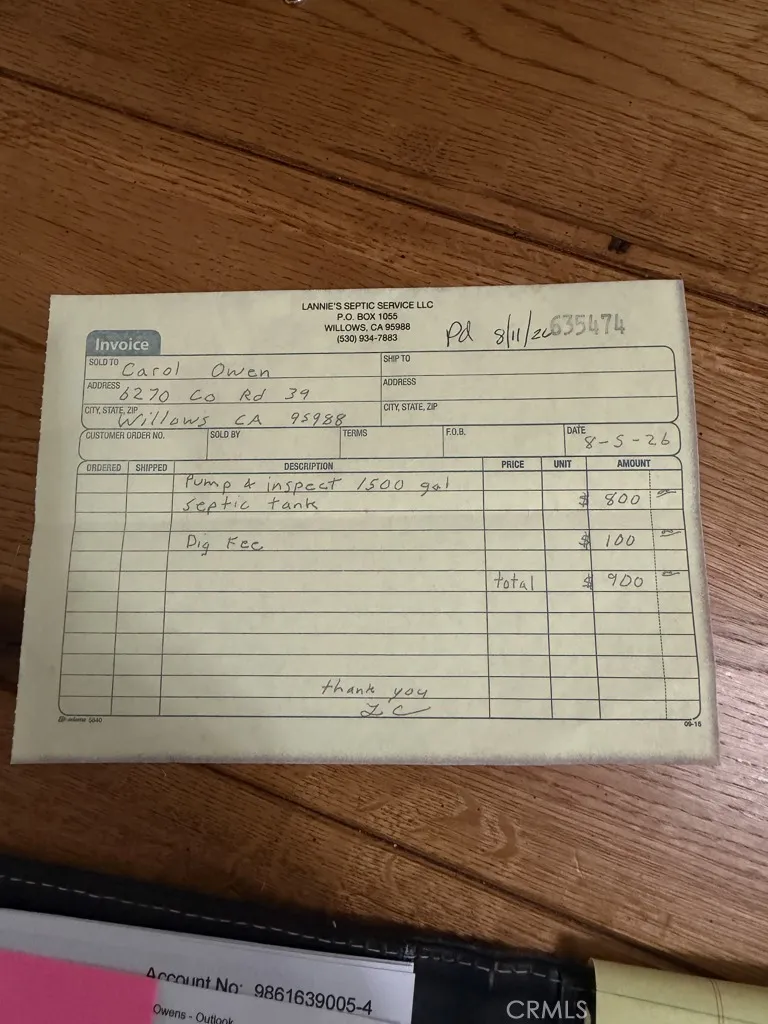 LANNIE'S SEPTIC SERVICE LLC
P.O. BOX 1055
WILLOWS, CA 95988
(530) 934-7883
Pd 8/11/26 635474
Invoice
SOLD TO Carol Owen SHIP TO
ADDRESS 6270 Co Rd 39 ADDRESS
CITY, STATE, ZIP Willows CA 95988 CITY, STATE, ZIP
CUSTOMER ORDER NO. SOLD BY TERMS F.O.B. DATE 8-5-26
ORDERED SHIPPED DESCRIPTION PRICE UNIT AMOUNT
Pump & inspect 1500 gal
septic tank $ 800 00
Dig Fee $ 100 00
total $ 900 00
thank you
LC
5840 09-16
Account No: 9861639005-4
Owens - Outlook
CRMLS